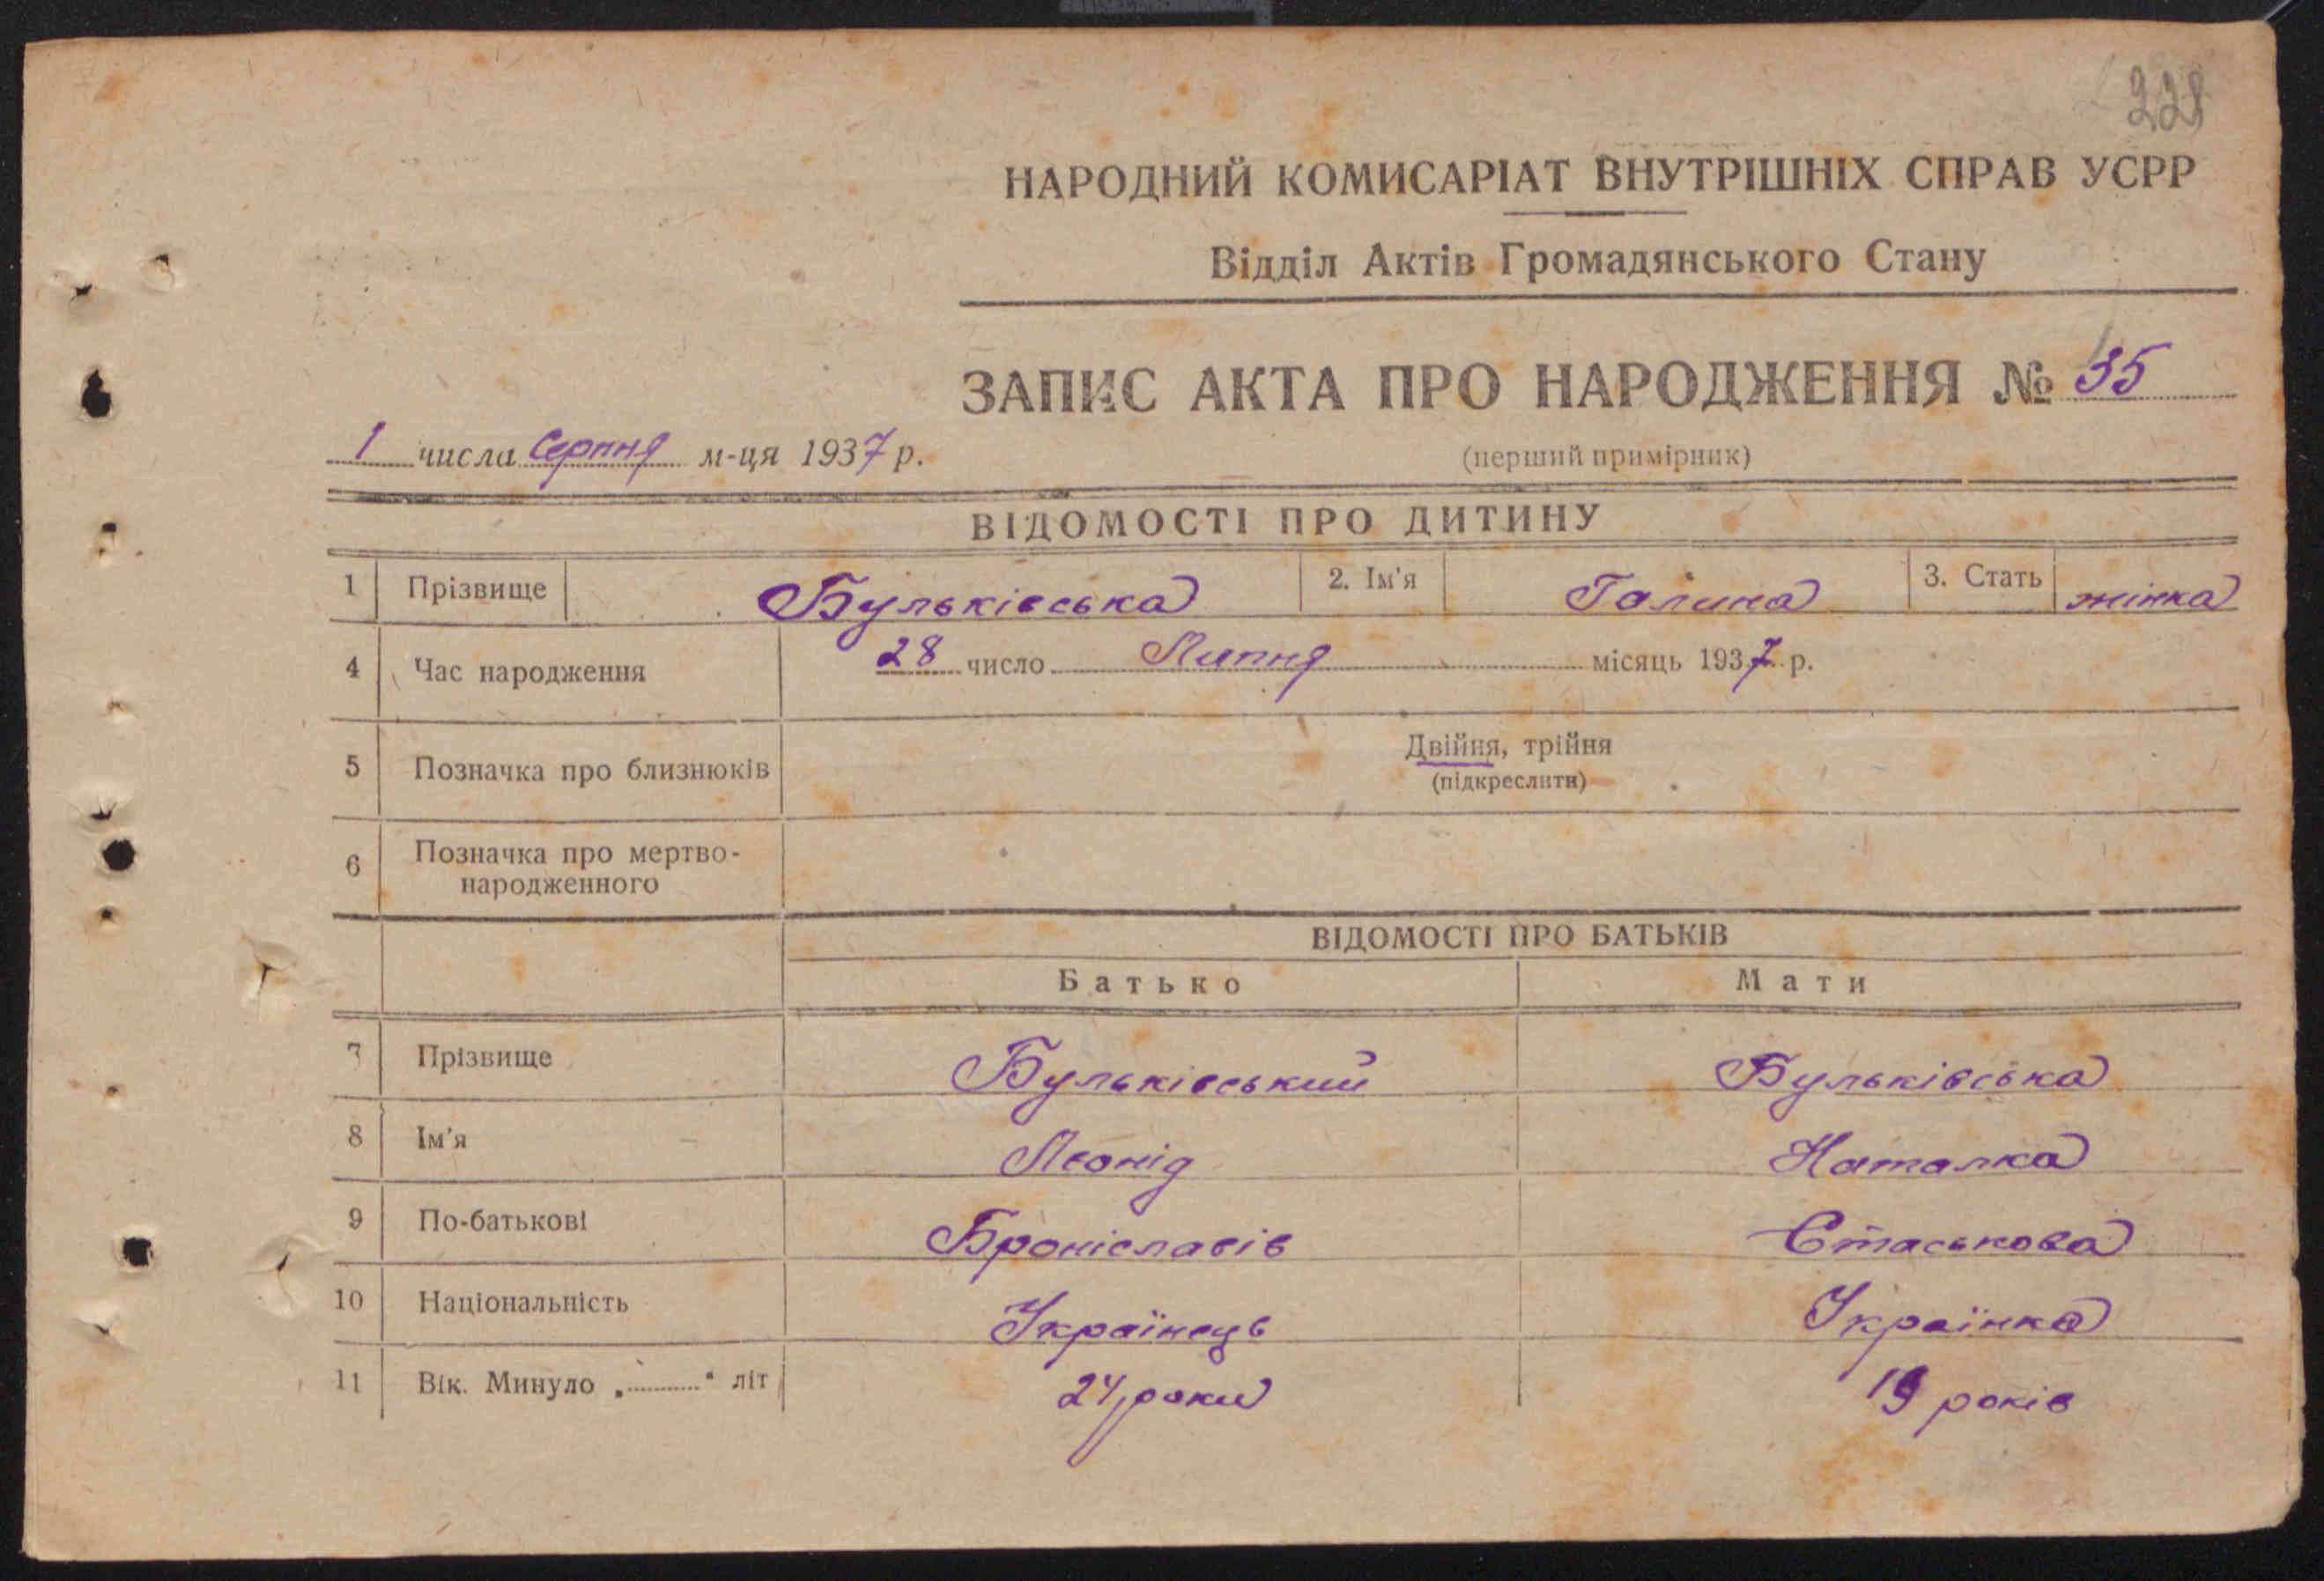 228
НАРОДНИЙ КОМИСАРІАТ ВНУТРІШНІХ СПРАВ УСРР
Відділ Актів Громадянського Стану
ЗАПИС АКТА ПРО НАРОДЖЕННЯ № 35
1 числа Серпня м-ця 1937 р.
(перший примірник)
ВІДОМОСТІ ПРО ДИТИНУ
1 Прізвище Бульківська 2. Ім'я Галина 3. Стать жінка
4 Час народження 28 число Липня місяць 1937 р.
Двійня, трійня
5 Позначка про близнюків
(підкреслити)
6 Позначка про мертво-
народженного
ВІДОМОСТІ ПРО БАТЬКІВ
Батько Мати
7 Прізвище Бульківський Бульківська
8 Ім'я Леонід Наталка
9 По-батькові Броніславів Стаськова
10 Національність Українець Українка
11 Вік. Минуло „........“ літ 24 роки 19 років